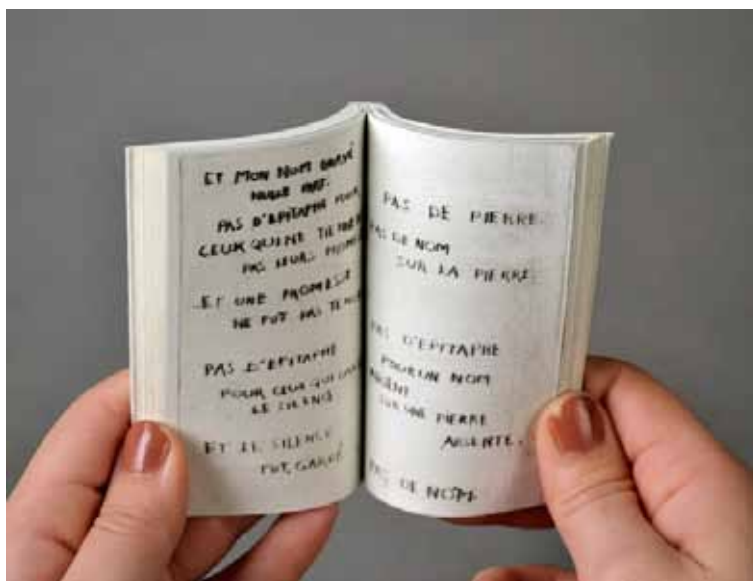 ET MON NOM GRAVÉ
NULLE PART.
PAS D'EPITAPHE POUR
CEUX QUI NE TIENNENT
PAS LEURS PROMESSES
ET UNE PROMESSE
NE FUT PAS TENUE
PAS D'EPITAPHE
POUR CEUX QUI
LE SILENCE
ET LE SILENCE
FUT GARDÉ
PAS DE PIERRE.
PAS DE NOM
SUR LA PIERRE
PAS D'EPITAPHE
POUR UN NOM
ABSENT
SUR UNE PIERRE
ABSENTE.
PAS DE NOM